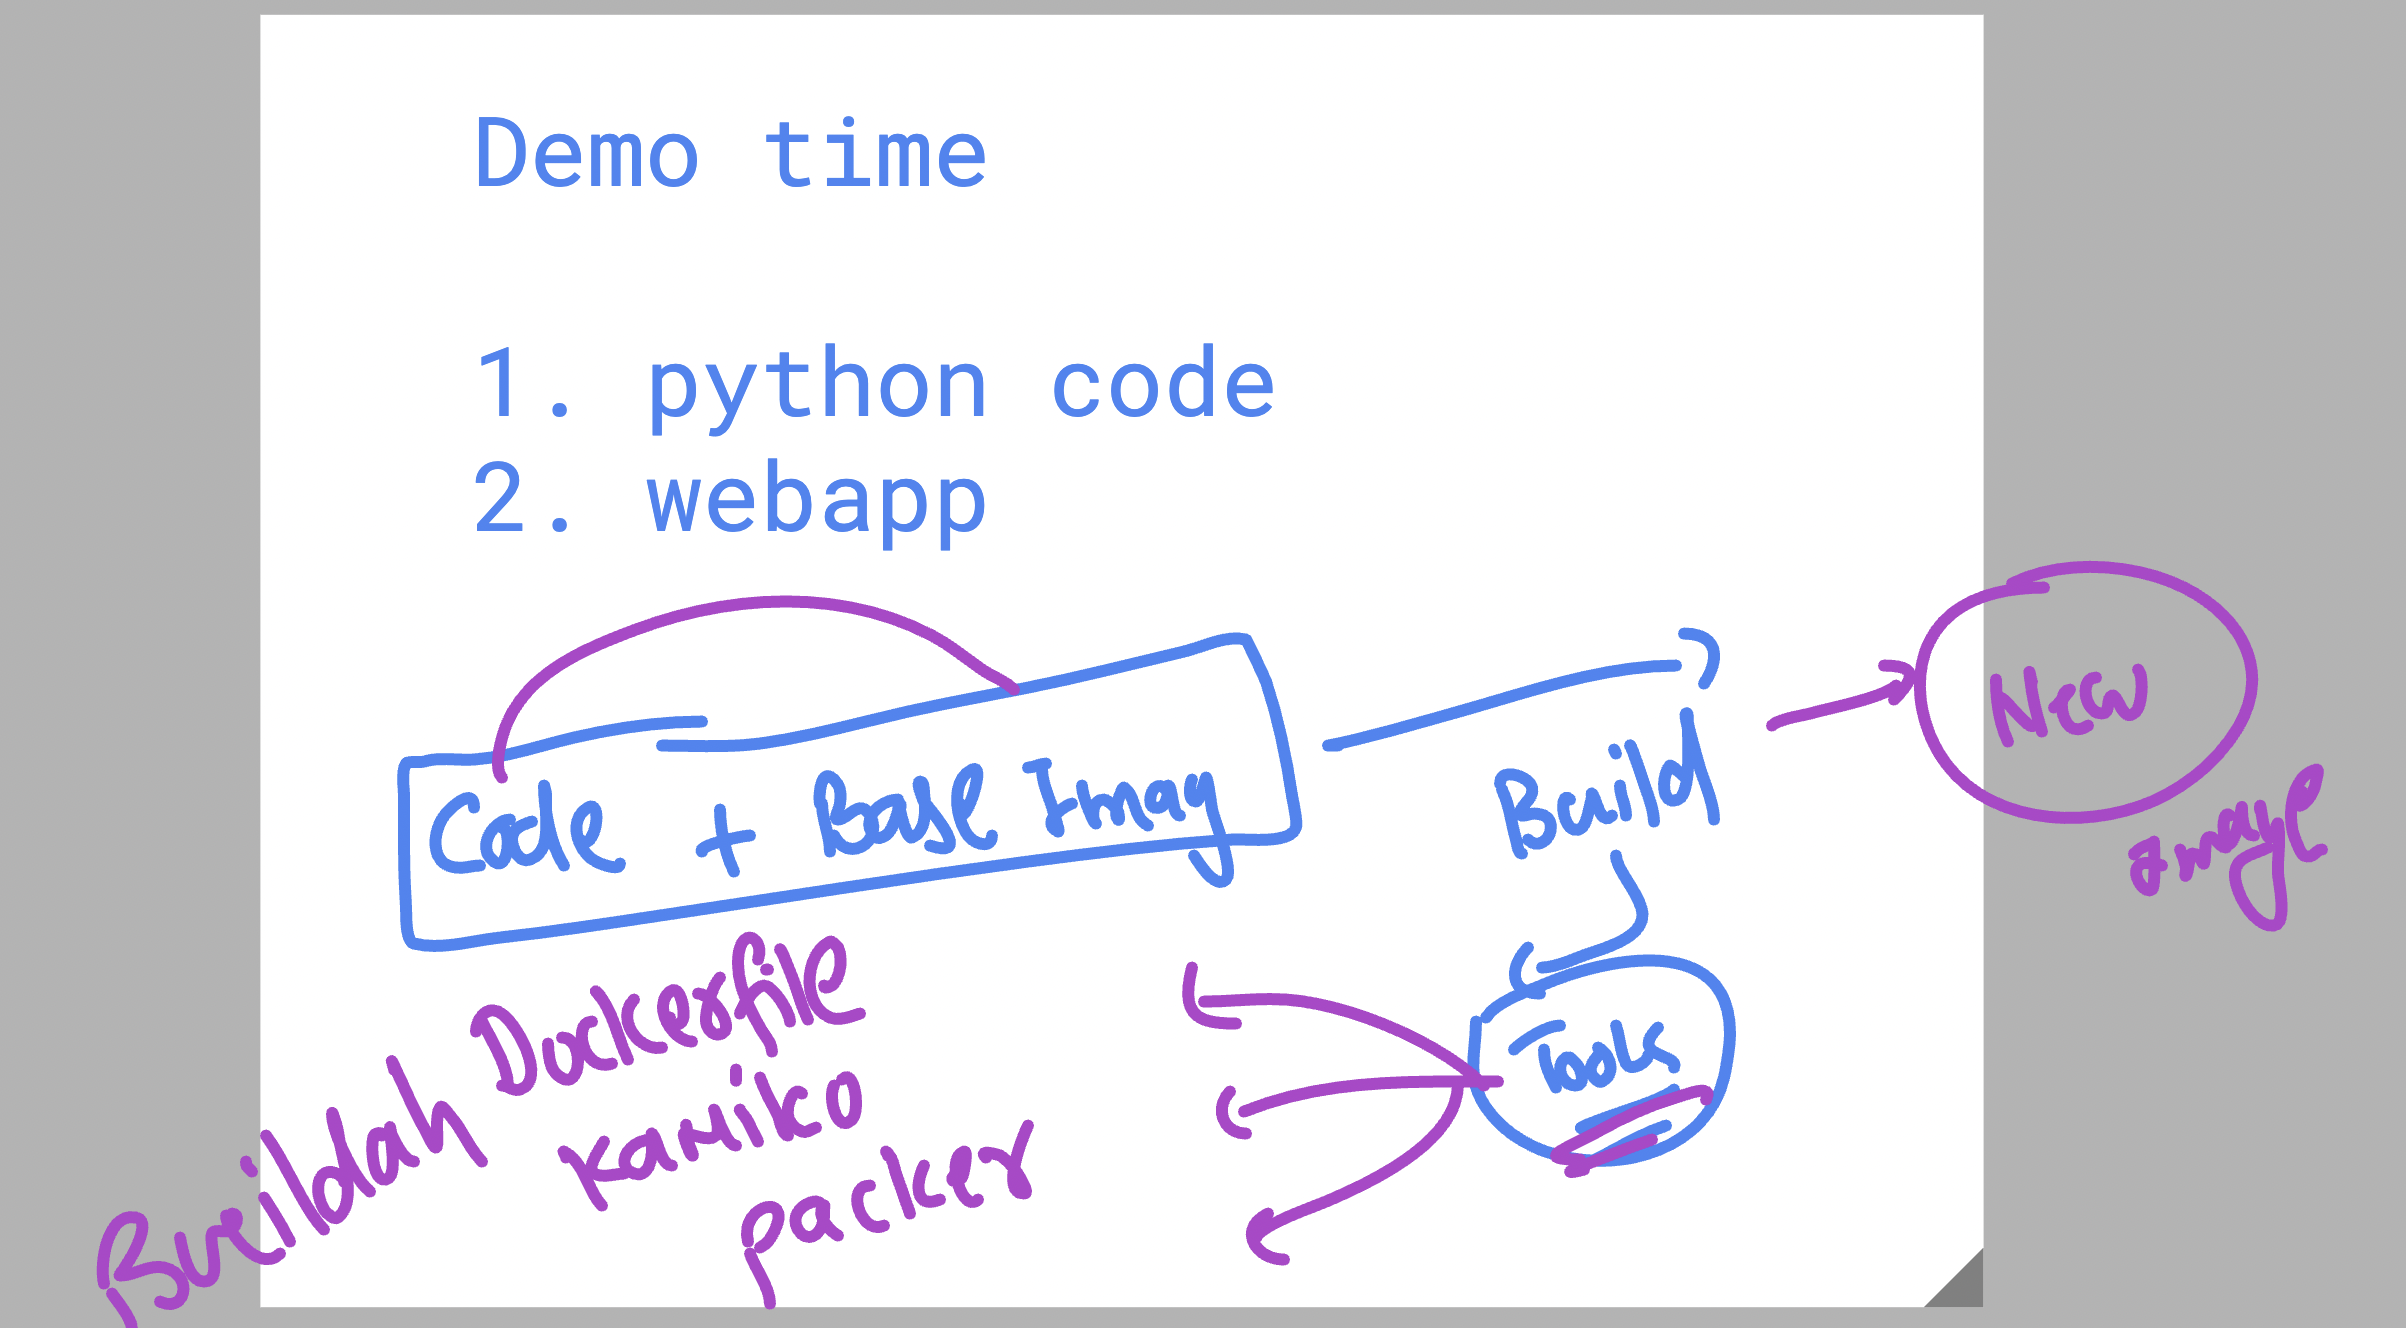 Demo time
1. python code
2. webapp
Code + Base Imag
Build
New
Image
Tools
Buildah Dockerfile
Kaniko
packer